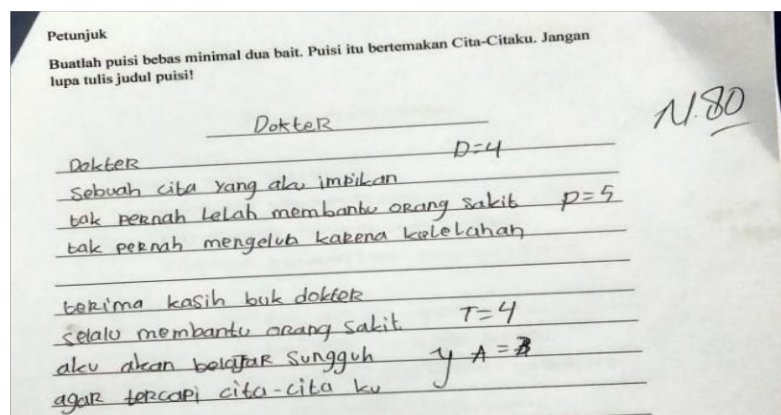 Petunjuk
Buatlah puisi bebas minimal dua bait. Puisi itu bertemakan Cita-Citaku. Jangan
lupa tulis judul puisi!
N.80
DokteR
DokteR D=4
Sebuah cita yang aku impikan
tak peRnah Lelah membantu oRang sakit P=5
tak peRnah mengeluh kaRena kelelahan
teRima kasih buk dokteR
selalu membantu oRang sakit T=4
aku akan belajaR sungguh A=3
agaR teRcapi cita-cita ku